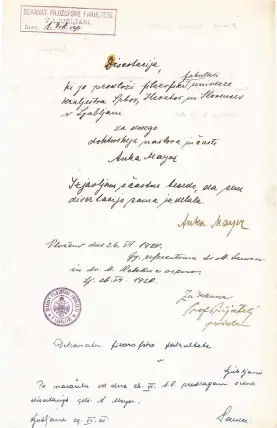 DEKANAT FILOZOFSKE FAKULTETE
V LJUBLJANI
Disertacija,
fakulteti
ki jo predloži filozofski univerze
kraljestva Srbov, Hrvatov in Slovencev
v Ljubljani
za dosego
doktorskega naslova in časti
Anka Mayer
Izjavljam s častno besedo, da sem
disertacijo sama izdelala.
Anka Mayer
Vloženo dne 26. VI. 1920.
Gg. referentoma dr. M.
in dr. M. v oceno.
Lj. 26. VI. 1920.
Za dekana
Prof
prodekan
Dekanatu filozofske fakultete
Ljubljani
Po naročilu od dne 26. VI. t. l. predlagam oceno
disertacije gdč. A. Mayer.
Ljubljana 29. VI. 20